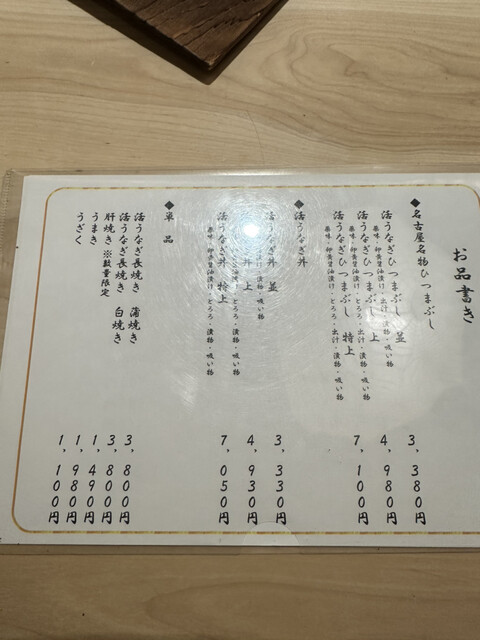 お品書き
◆名古屋名物ひつまぶし
活うなぎひつまぶし 並 3,380円
薬味・卵黄醤油漬け・出汁・漬物・吸い物
活うなぎひつまぶし 上 4,980円
薬味・卵黄醤油漬け・とろろ・出汁・漬物・吸い物
活うなぎひつまぶし 特上 7,100円
薬味・卵黄醤油漬け・とろろ・出汁・漬物・吸い物
◆活うなぎ丼
活うなぎ丼 並 3,330円
漬け・漬物・吸い物
丼 上 4,930円
とろろ・漬物・吸い物
活うなぎ丼 特上 7,050円
薬味・卵黄醤油漬け・とろろ・漬物・吸い物
◆単品
活うなぎ長焼き 蒲焼き 3,800円
活うなぎ長焼き 白焼き 3,800円
肝焼き ※数量限定 1,490円
うまき 1,980円
うざく 1,100円